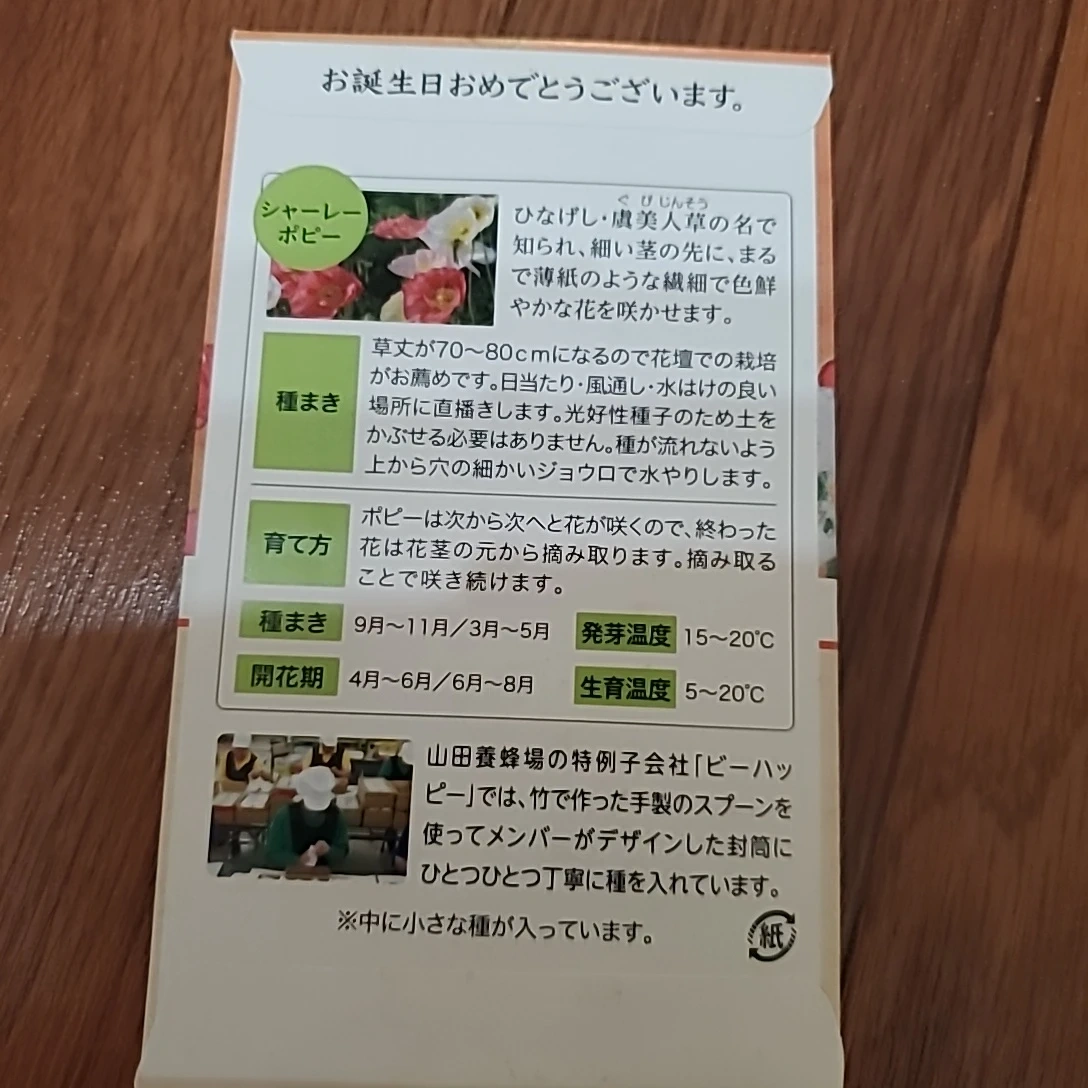 お誕生日おめでとうございます。
シャーレー
ポピー
ぐびじんそう
ひなげし・虞美人草の名で
知られ、細い茎の先に、まる
で薄紙のような繊細で色鮮
やかな花を咲かせます。
種まき
草丈が70～80cmになるので花壇での栽培
がお薦めです。日当たり・風通し・水はけの良い
場所に直播きします。光好性種子のため土を
かぶせる必要はありません。種が流れないよう
上から穴の細かいジョウロで水やりします。
育て方
ポピーは次から次へと花が咲くので、終わった
花は花茎の元から摘み取ります。摘み取る
ことで咲き続けます。
種まき 9月～11月／3月～5月 発芽温度 15～20℃
開花期 4月～6月／6月～8月 生育温度 5～20℃
山田養蜂場の特例子会社「ビーハッ
ピー」では、竹で作った手製のスプーンを
使ってメンバーがデザインした封筒に
ひとつひとつ丁寧に種を入れています。
※中に小さな種が入っています。
紙